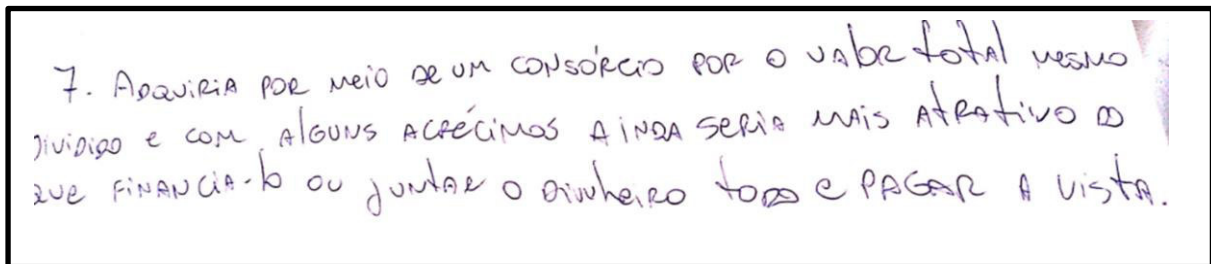 7. Adquiria por meio de um consórcio por o valor total mesmo
dividido e com alguns acrécimos ainda seria mais atrativo do
que financia-lo ou juntar o dinheiro todo e pagar a vista.